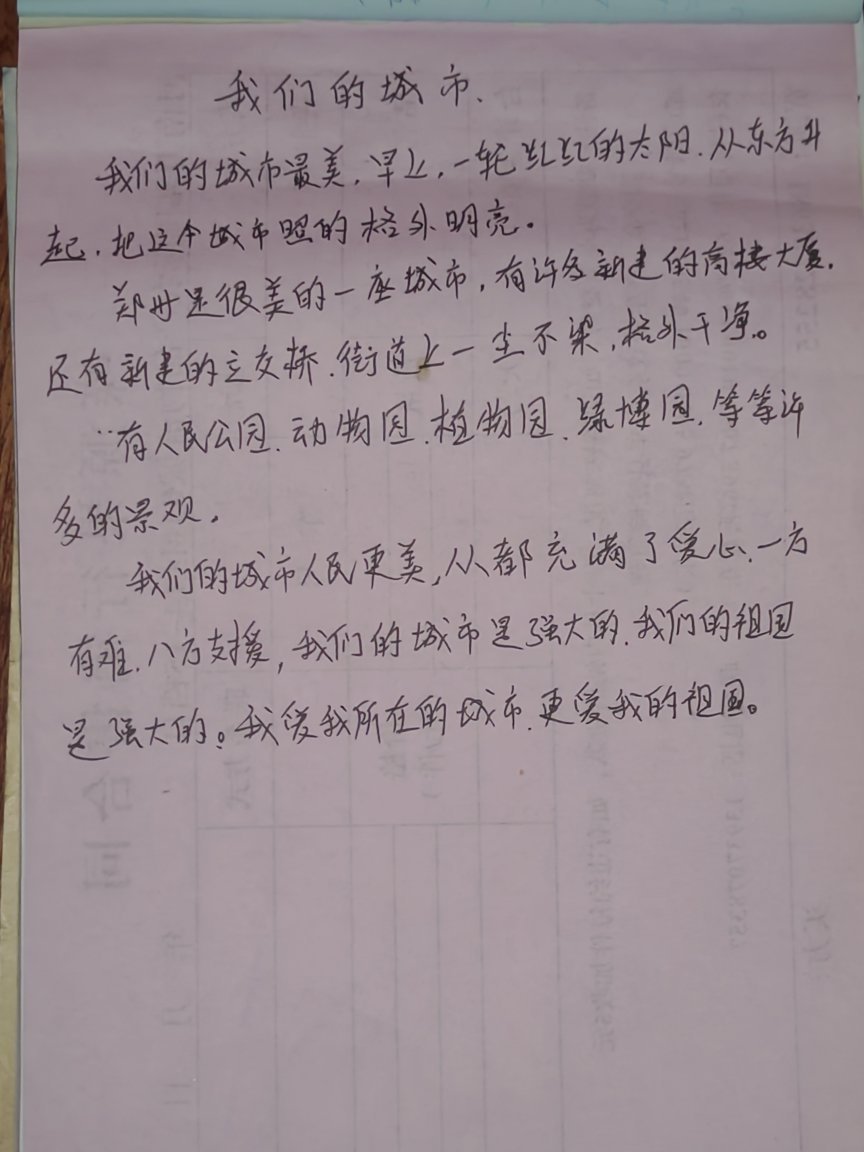 我们的城市.
我们的城市最美.早上,一轮红红的太阳.从东方升
起.把这个城市照的格外明亮。
郑州是很美的一座城市,有许多新建的高楼大厦.
还有新建的立交桥.街道上一尘不染,格外干净。
有人民公园.动物园.植物园.绿博园.等等许
多的景观.
我们的城市人民更美,从都充满了爱心.一方
有难.八方支援,我们的城市是强大的.我们的祖国
是强大的。我爱我所在的城市.更爱我的祖国。